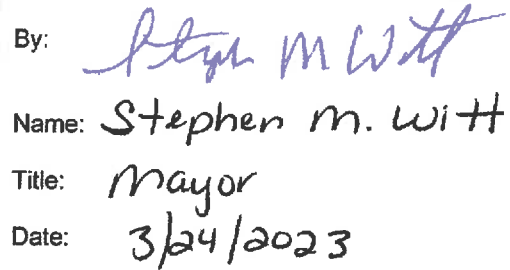 By: Stephen M Witt
Name: Stephen M. Witt
Title: Mayor
Date: 3/24/2023